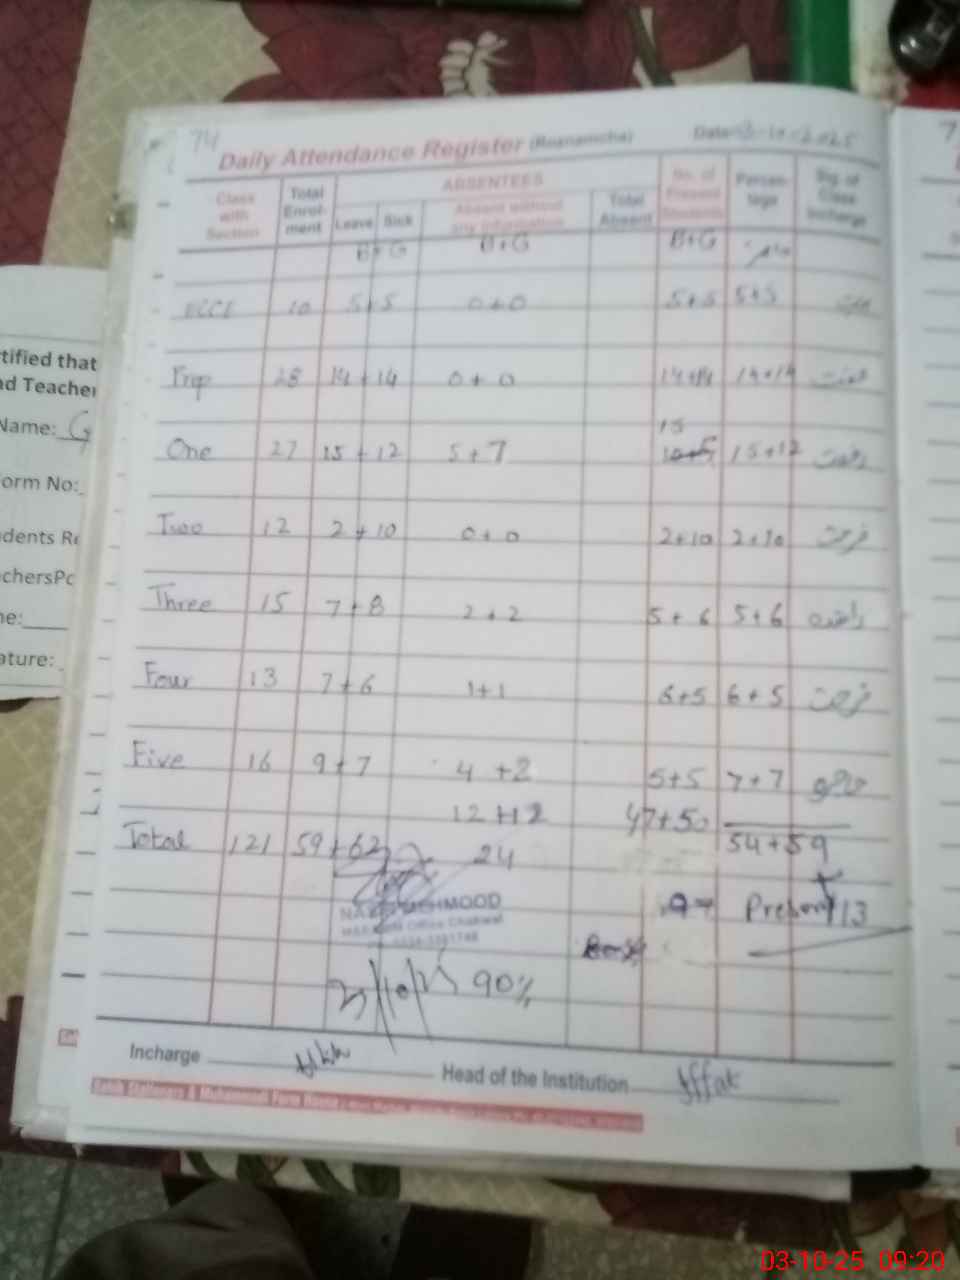 74
Daily Attendance Register (Roznamcha) Date 3-10-2025
Class with Section Total Enrol-ment ABSENTEES No. of Present Students Percen-tage Sig. of Class Incharge
Leave Sick Absent without any information Total Absent
B+G B+G B+G حاضر
ECCE 10 5+5 0+0 5+5 5+5
Prep 28 14+14 0+0 14+14 14+14
15
One 27 15+12 5+7 15+12
Two 12 2+10 0+0 2+10 2+10
Three 15 7+8 2+2 5+6 5+6
Four 13 7+6 1+1 6+5 6+5
Five 16 9+7 4+2 5+5 7+7
12+12 47+50
Total 121 59+62 24 54+59
MEHMOOD
Present 113
3/10/25 90%
Incharge Head of the Institution Affat
tified that
nd Teacher
Name: G
orm No:
dents Re
chersPo
ne:
ature:
03-10-25 09:20